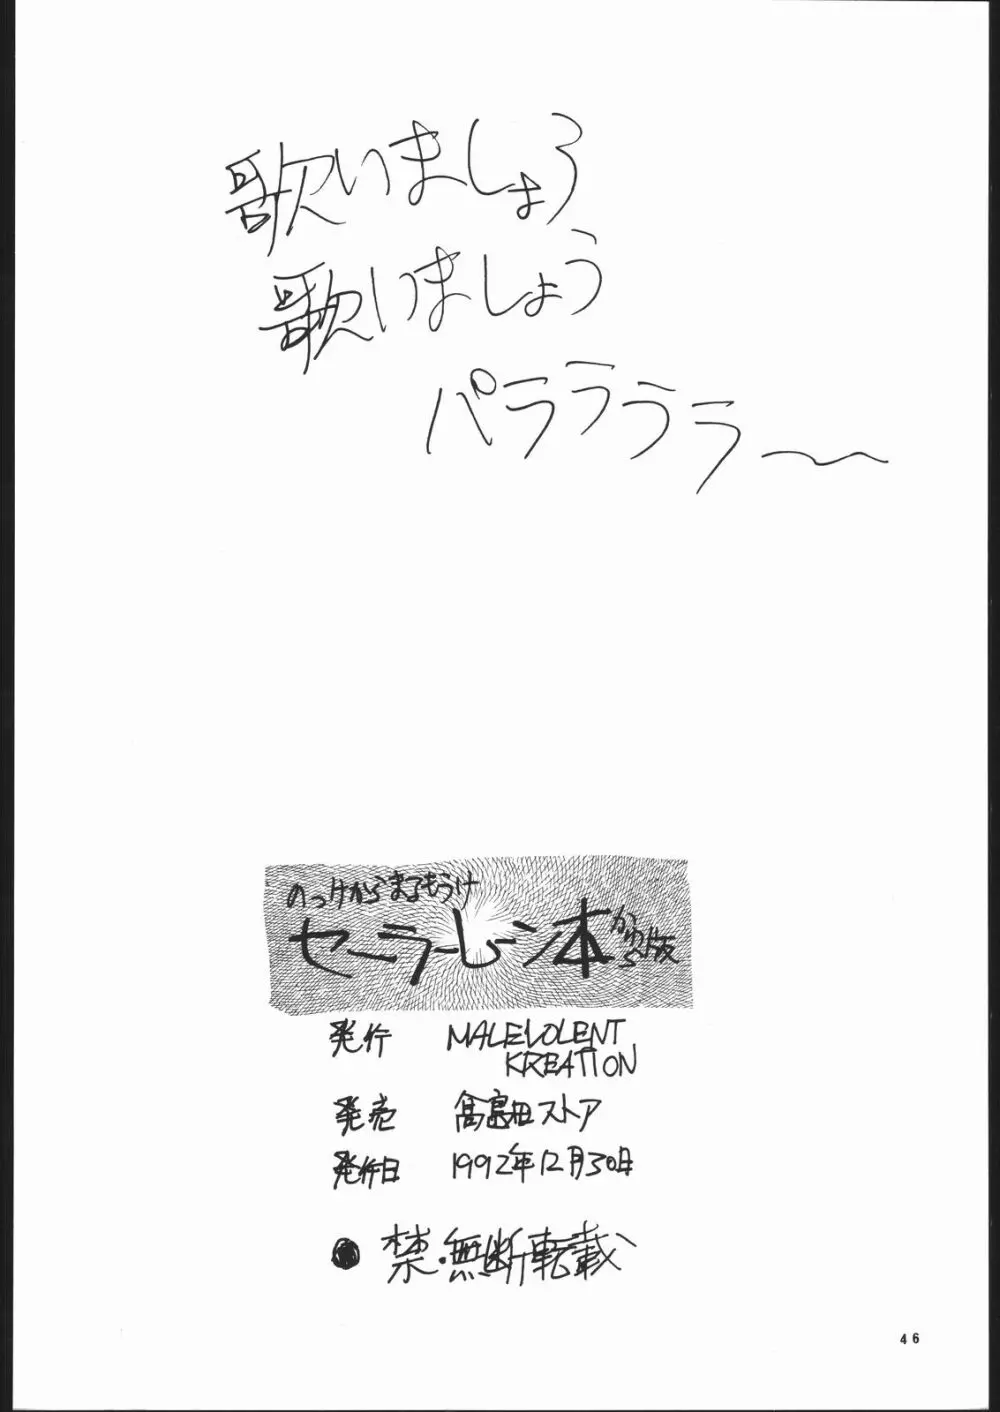 歌いましょう
歌いましょう
パララララー〜
のっけからまるもうけ
セーラームーン本 かわら版
発行 MALEVOLENT
KREATION
発売 高島田ストア
発行日 1992年12月30日
●禁・無断転載
46